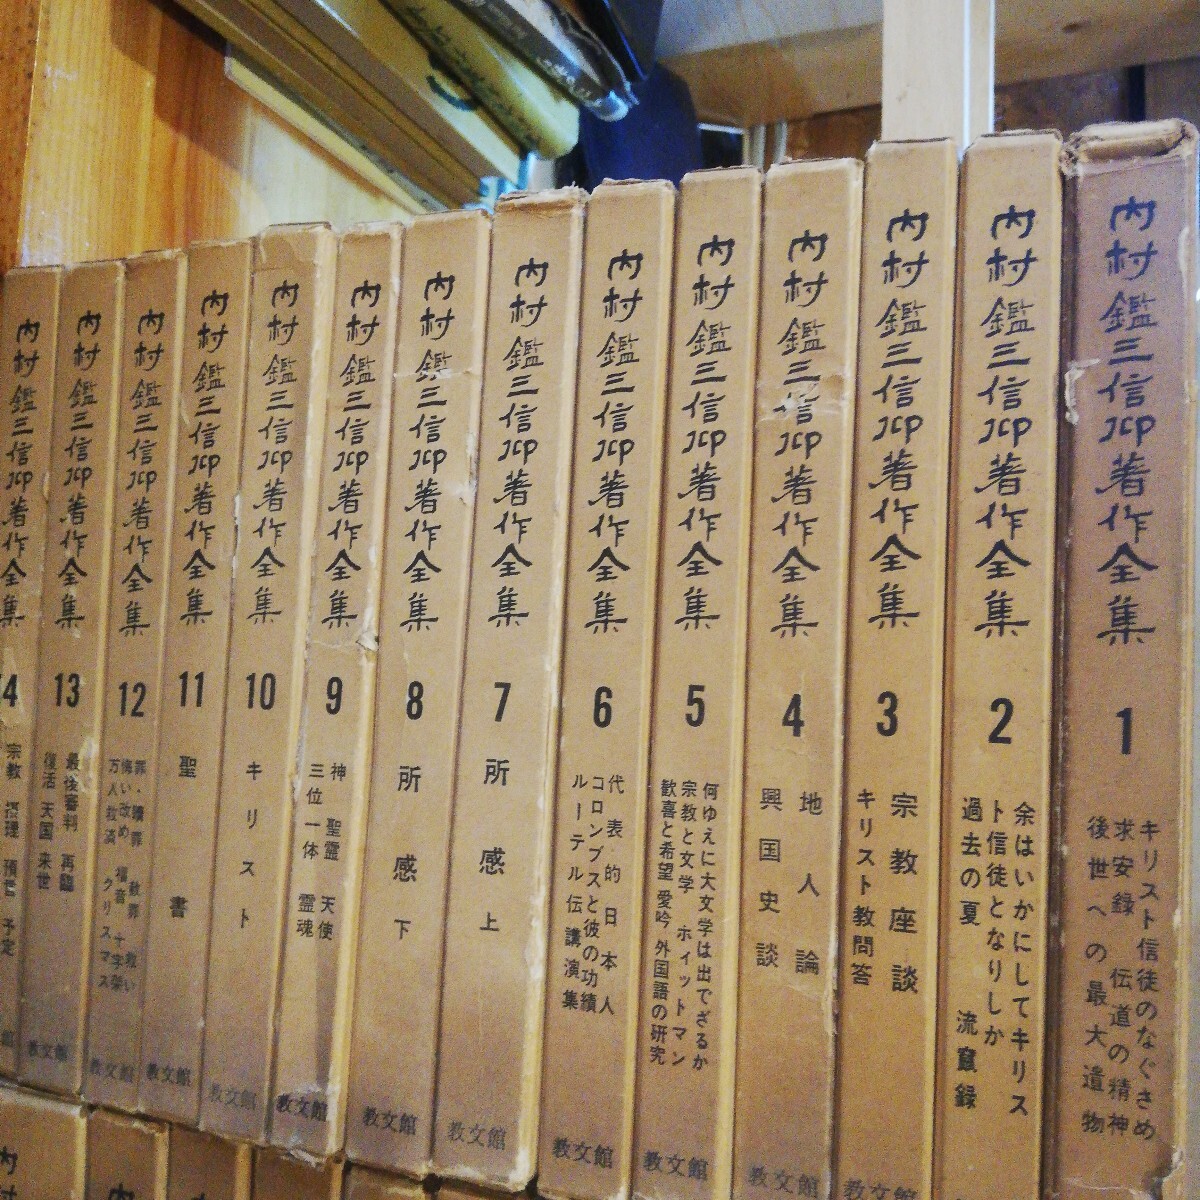 内村鑑三信仰著作全集
1
キリスト信徒のなぐさめ
求安録 伝道の精神
後世への最大遺物
内村鑑三信仰著作全集
2
余はいかにしてキリス
ト信徒となりしか
過去の夏 流竄録
内村鑑三信仰著作全集
3
宗教座談
キリスト教問答
教文館
内村鑑三信仰著作全集
4
地人論
興国史談
教文館
内村鑑三信仰著作全集
5
何ゆえに大文学は出でざるか
宗教と文学 ホィットマン
歓喜と希望 愛吟 外国語の研究
教文館
内村鑑三信仰著作全集
6
代表的日本人
コロンブスと彼の功績
ルーテル伝講演集
教文館
内村鑑三信仰著作全集
7
所感 上
教文館
内村鑑三信仰著作全集
8
所感 下
教文館
内村鑑三信仰著作全集
9
神 聖霊 天使
三位一体 霊魂
教文館
内村鑑三信仰著作全集
10
キリスト
教文館
内村鑑三信仰著作全集
11
聖書
教文館
内村鑑三信仰著作全集
12
罪・贖罪 赦罪 救い
悔い改め 福音 十字架
万人救済 クリスマス
教文館
内村鑑三信仰著作全集
13
最後審判 再臨
復活 天国 来世
教文館
内村鑑三信仰著作全集
14
宗教 摂理 預言 予定
館
内村
内